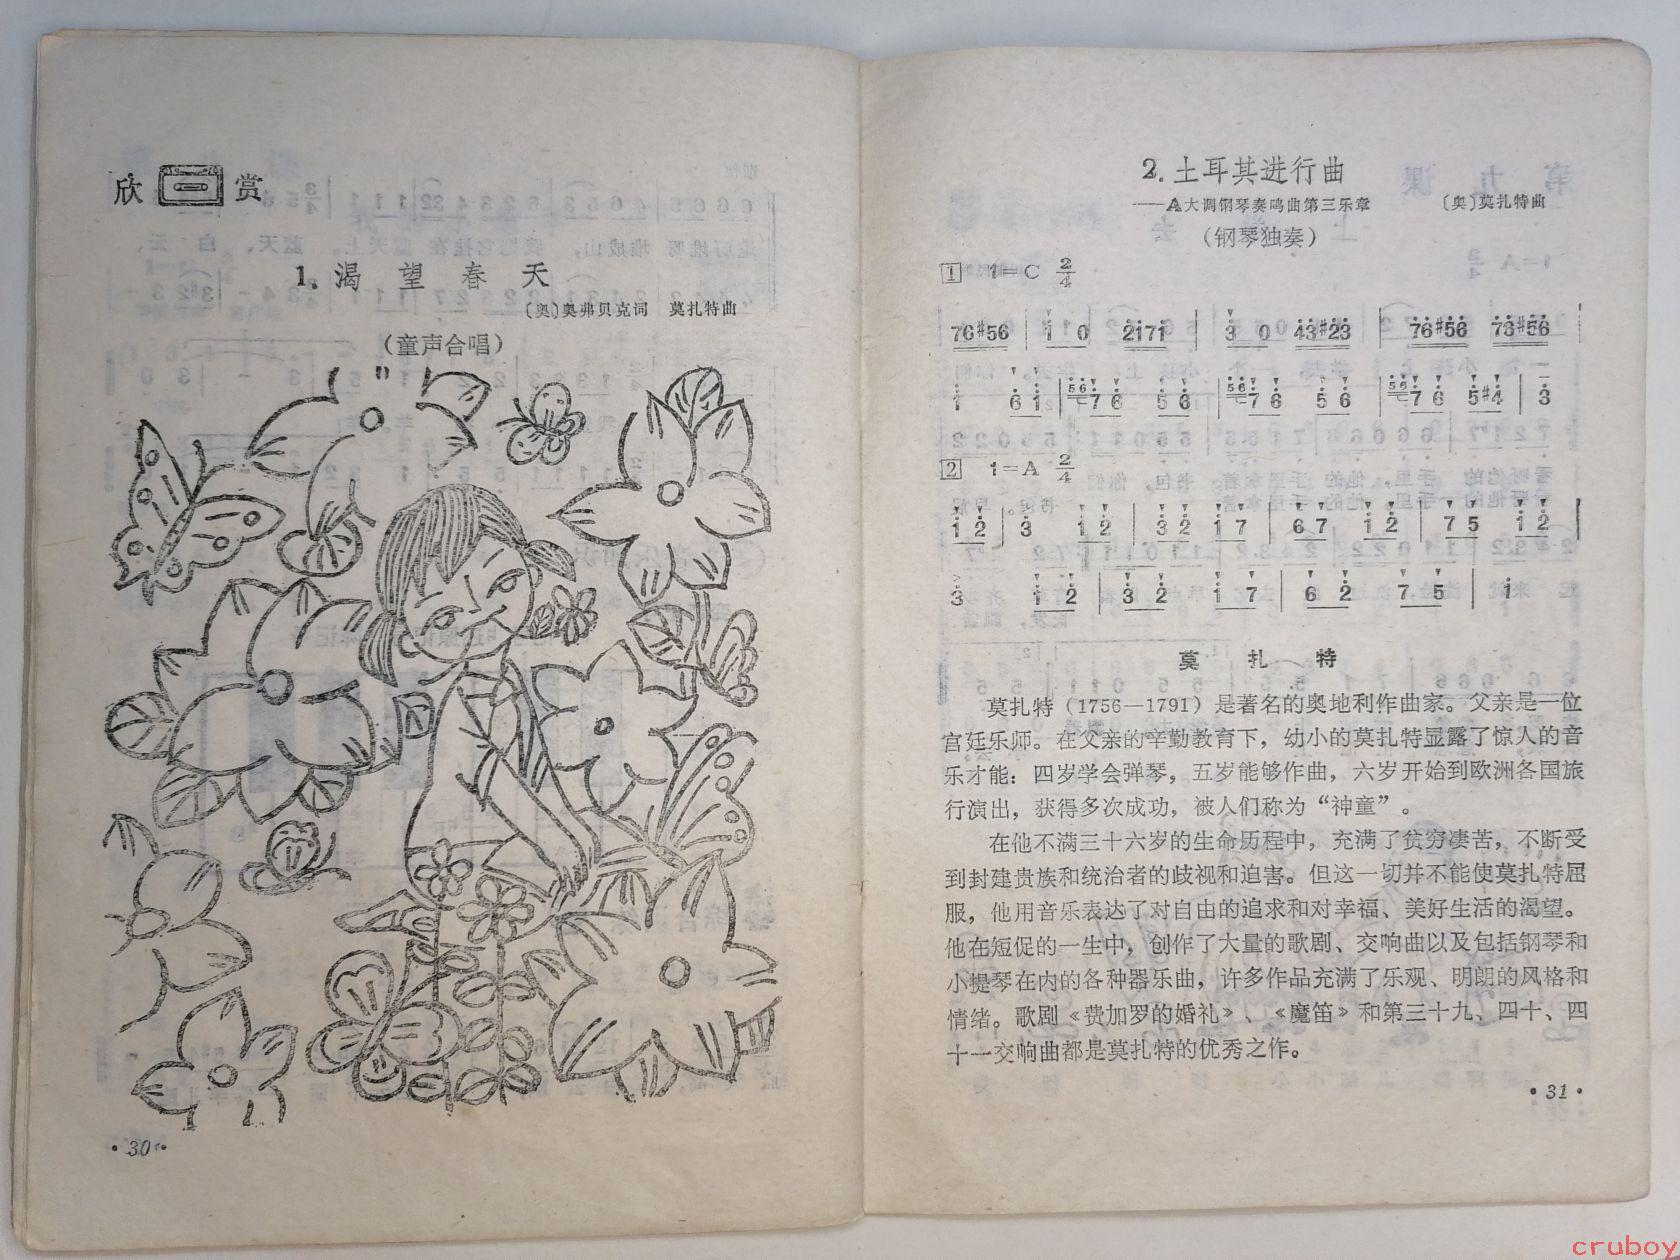 欣赏
1. 渴望春天
〔奥〕奥弗贝克词 莫扎特曲
(童声合唱)
·30·
2. 土耳其进行曲
——A大调钢琴奏鸣曲第三乐章 〔奥〕莫扎特曲
(钢琴独奏)
1 1=C 2/4
76#56 | 1 0 2171 | 3 0 43#23 | 76#56 76#56 |
1 61 | 56 76 56 | 56 76 56 | 56 76 5#4 | 3
2 1=A 2/4
12 | 3 12 | 32 17 | 67 12 | 75 12 |
3 12 | 32 17 | 62 75 | 1
莫扎特
莫扎特(1756—1791)是著名的奥地利作曲家。父亲是一位
宫廷乐师。在父亲的辛勤教育下，幼小的莫扎特显露了惊人的音
乐才能：四岁学会弹琴，五岁能够作曲，六岁开始到欧洲各国旅
行演出，获得多次成功，被人们称为“神童”。
在他不满三十六岁的生命历程中，充满了贫穷凄苦，不断受
到封建贵族和统治者的歧视和迫害。但这一切并不能使莫扎特屈
服，他用音乐表达了对自由的追求和对幸福、美好生活的渴望。
他在短促的一生中，创作了大量的歌剧、交响曲以及包括钢琴和
小提琴在内的各种器乐曲，许多作品充满了乐观、明朗的风格和
情绪。歌剧《费加罗的婚礼》、《魔笛》和第三十九、四十、四
十一交响曲都是莫扎特的优秀之作。
·31·
cruboy